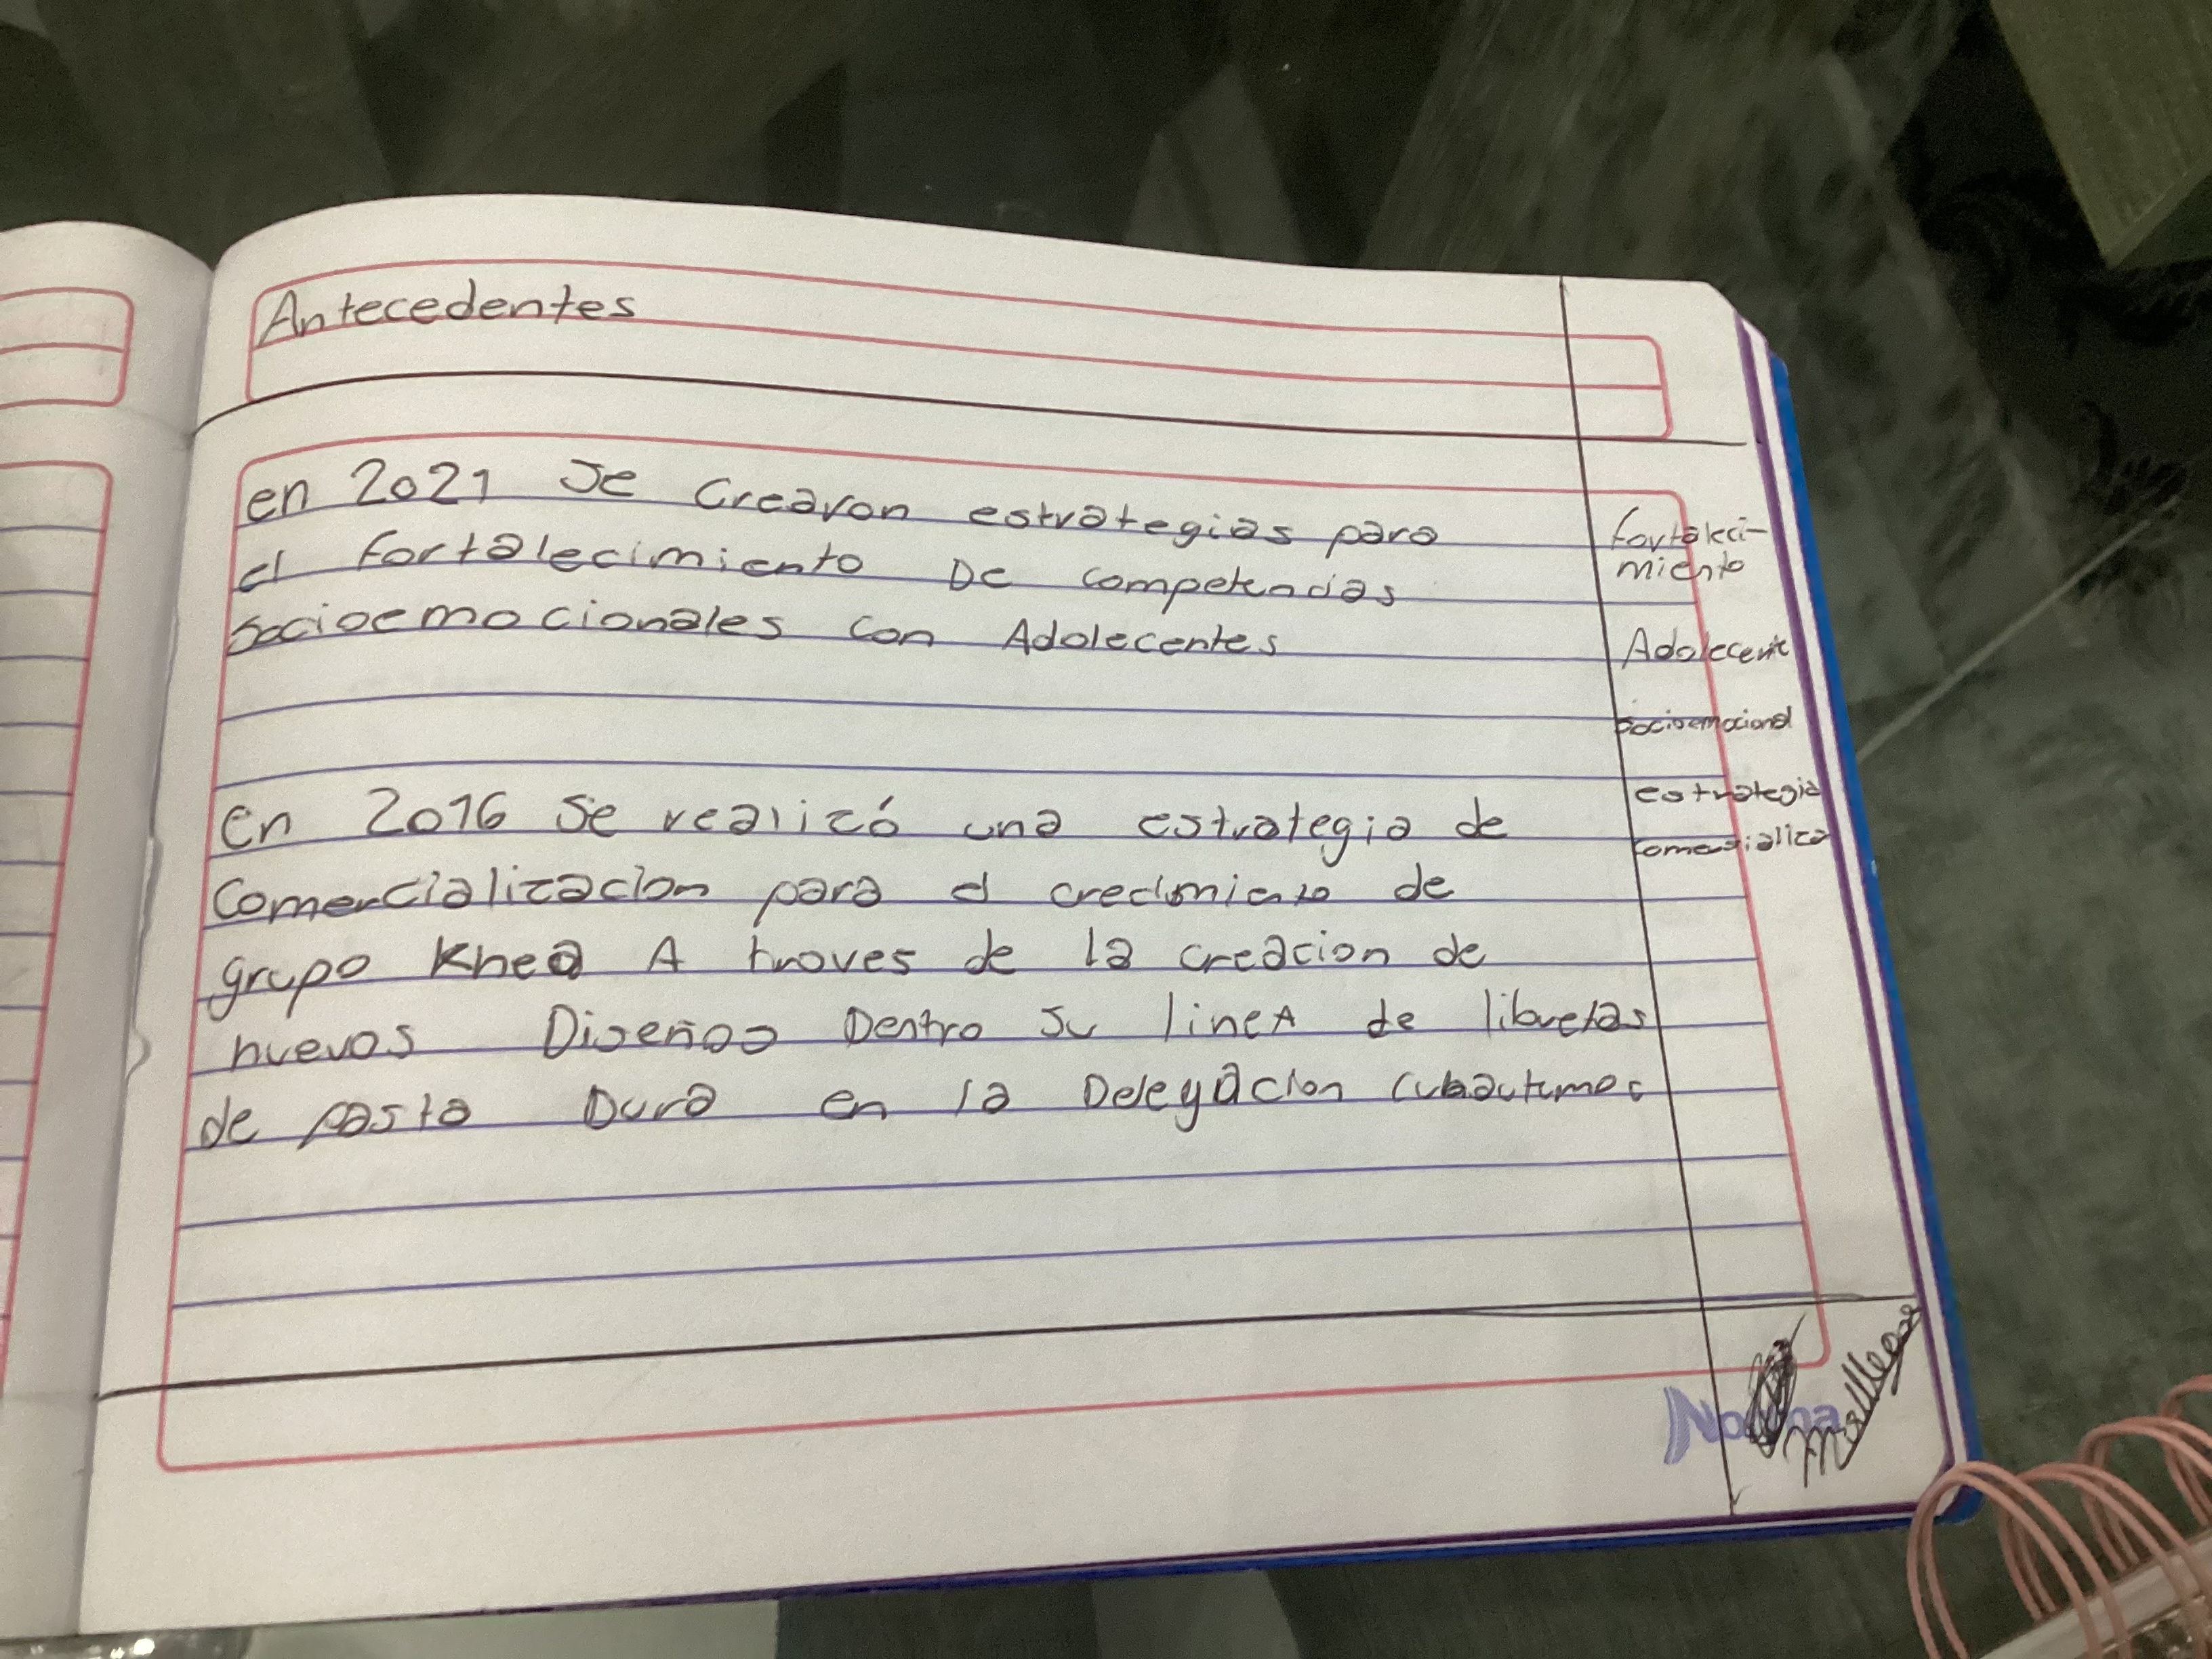 Antecedentes
en 2021 Se Crearon estrategias para
el fortalecimiento De competencias
Socioemocionales con Adolecentes
En 2016 Se realizó una estrategia de
Comercializacion para el crecimiento de
grupo Khea A traves de la creacion de
nuevos Diseños Dentro Su lineA de libretas
de pasta Dura en la Delegacion
fortaleci-
miento
Adolecente
Socioemocional
estrategia
Norma